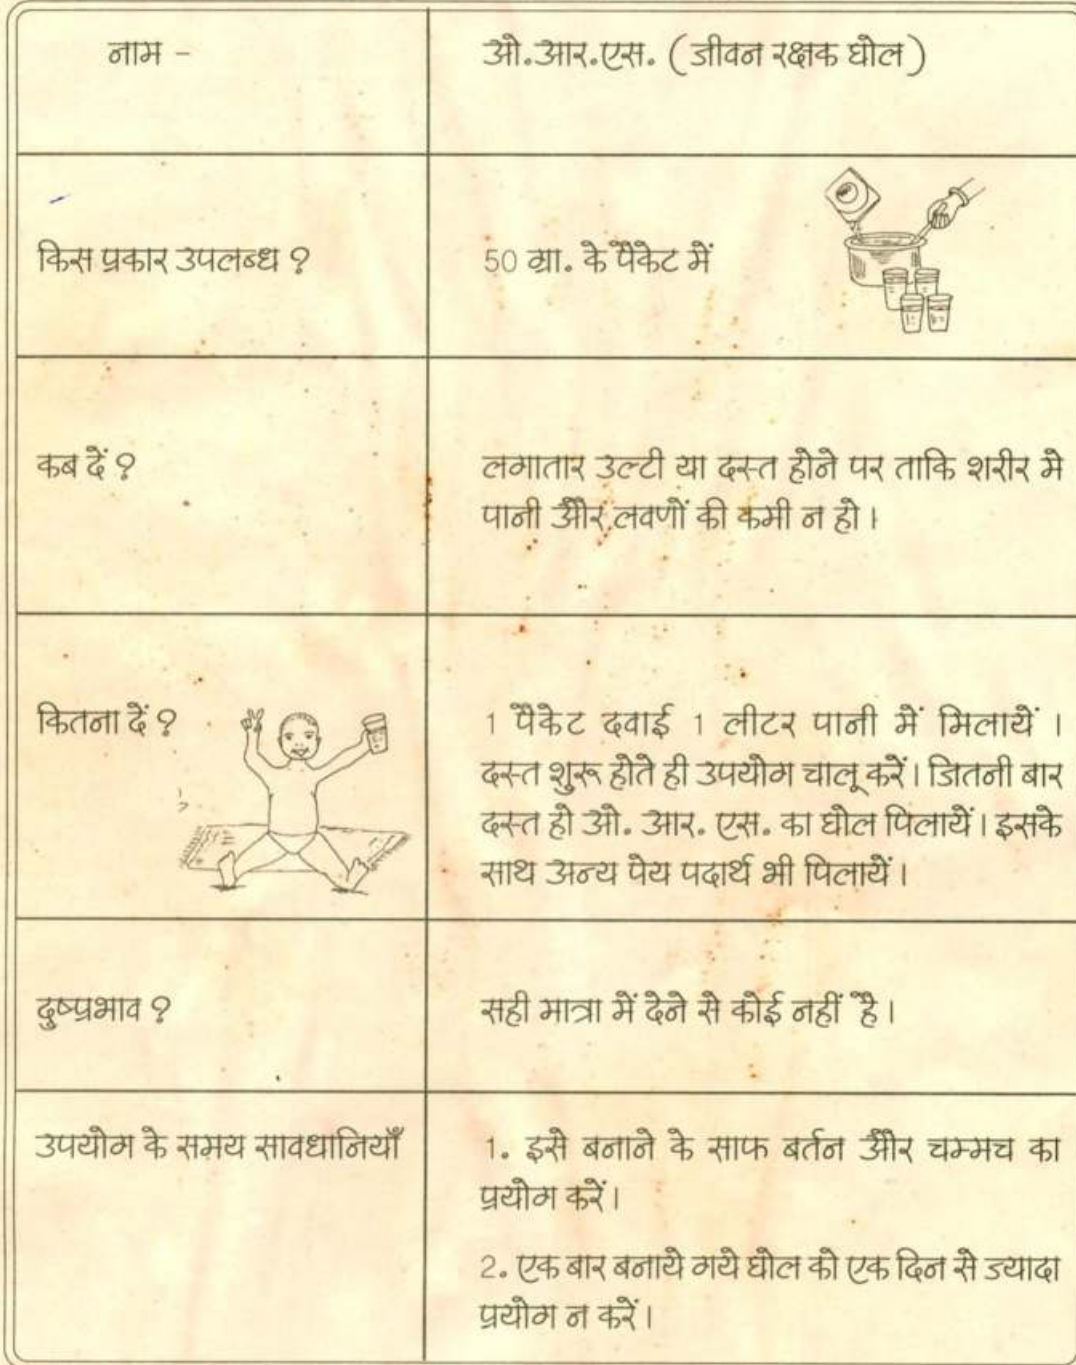 नाम -
ओ.आर.एस. (जीवन रक्षक घोल)
किस प्रकार उपलब्ध ?
50 ग्रा. के पैकेट में
कब दें ?
लगातार उल्टी या दस्त होने पर ताकि शरीर मे
पानी और लवणों की कमी न हो।
कितना दें ?
1 पैकेट दवाई 1 लीटर पानी में मिलायें ।
दस्त शुरू होते ही उपयोग चालू करें। जितनी बार
दस्त हो ओ. आर. एस. का घोल पिलायें। इसके
साथ अन्य पेय पदार्थ भी पिलायें।
दुष्प्रभाव ?
सही मात्रा में देने से कोई नहीं है।
उपयोग के समय सावधानियाँ
1. इसे बनाने के साफ बर्तन और चम्मच का
प्रयोग करें।
2. एक बार बनाये गये घोल को एक दिन से ज्यादा
प्रयोग न करें।